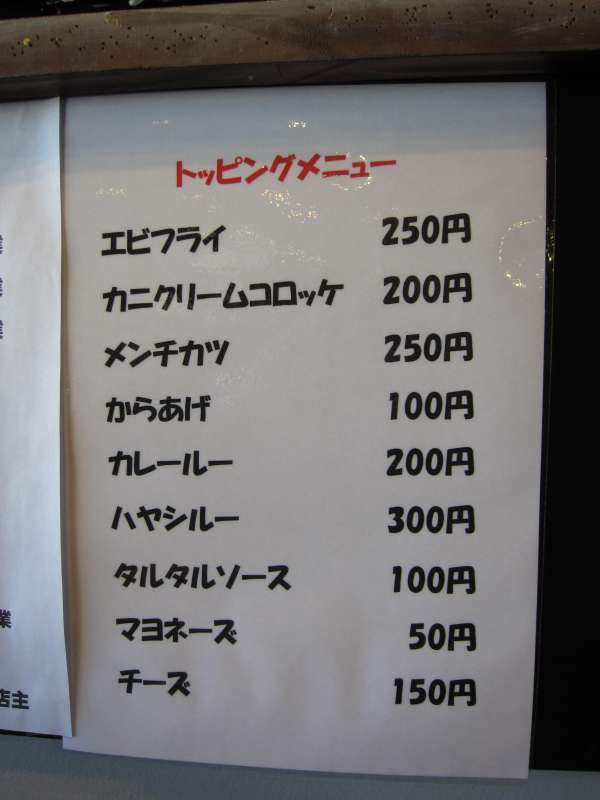 トッピングメニュー
エビフライ 250円
カニクリームコロッケ 200円
メンチカツ 250円
からあげ 100円
カレールー 200円
ハヤシルー 300円
タルタルソース 100円
マヨネーズ 50円
チーズ 150円
業
店主